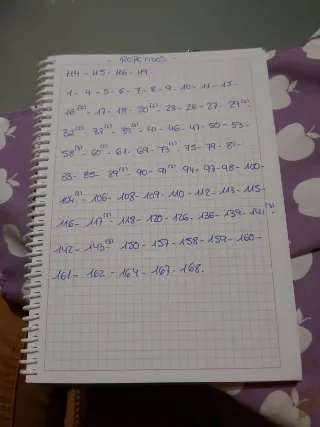 - REPETIDOS -
H4 - H5 - H6 - H9 -
1 - 4 - 5 - 6 - 7 - 8 - 9 - 10 - 11 - 15 -
16(2) - 17 - 18 - 20(2) - 23 - 26 - 27 - 29(2) -
32(2) - 37(2) - 39(2) - 41 - 46 - 47 - 50 - 53 -
58(3) - 60(2) - 61 - 69 - 73(2) - 75 - 79 - 81 -
83 - 85 - 89(2) - 90 - 91(2) - 94 - 97 - 98 - 100 -
104(2) - 106 - 108 - 109 - 110 - 112 - 113 - 115 -
116 - 117(2) - 118 - 120 - 126 - 136 - 139 - 141(3) -
142 - 143(3) - 150 - 157 - 158 - 159 - 160 -
161 - 162 - 164 - 167 - 168.